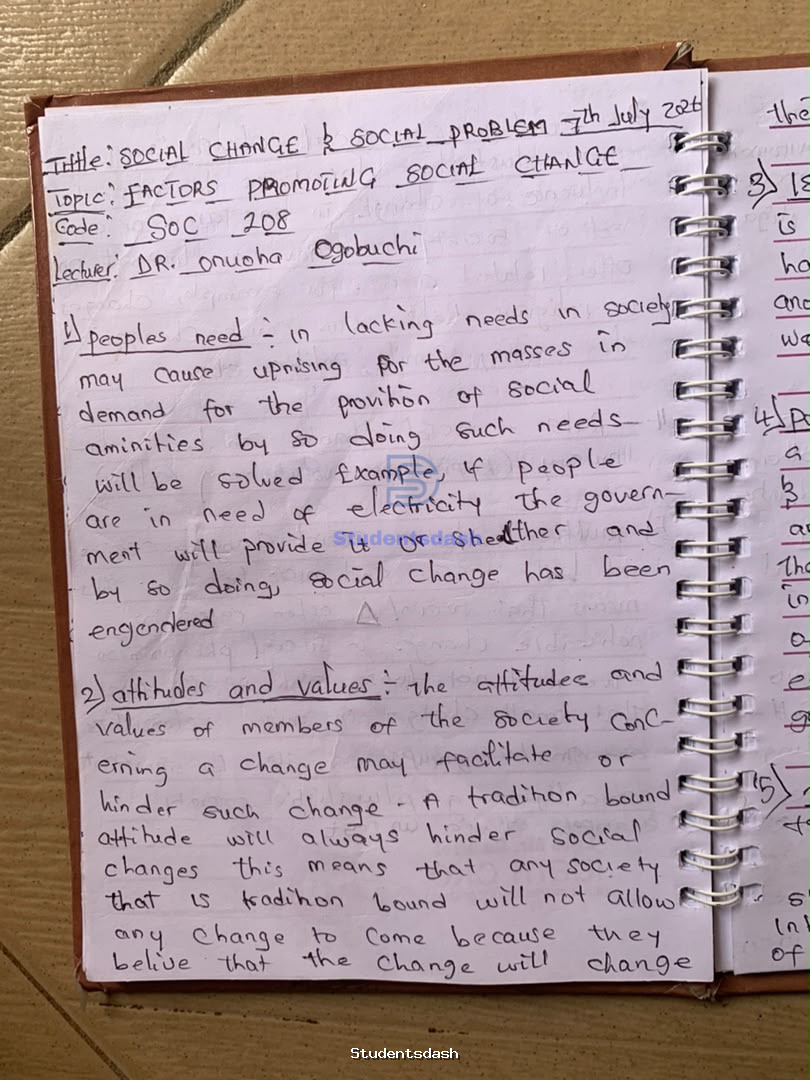 Tittle: SOCIAL CHANGE & SOCIAL PROBLEM 7th July 2026
Topic: FACTORS PROMOTING SOCIAL CHANGE
Code: SOC 208
Lecturer: DR. onuoha Ogobuchi
1) peoples need ÷ in lacking needs in society
may cause uprising for the masses in
demand for the provihon of social
aminities by so doing such needs
will be solved Example, if people
are in need of electricity the govern-
ment will provide it or shealther and
by so doing, social change has been
engendered
2) attitudes and values ÷ the attitudes and
values of members of the society conc-
erning a change may facilitate or
hinder such change - A tradition bound
attitude will always hinder social
changes this means that any society
that is tradition bound will not allow
any change to come because they
belive that the change will change
the
3)
is
ha
and
wa
4)
a
&
a
tha
in
a
e
g
5)
s
in
of
Studentsdash
Studentsdash